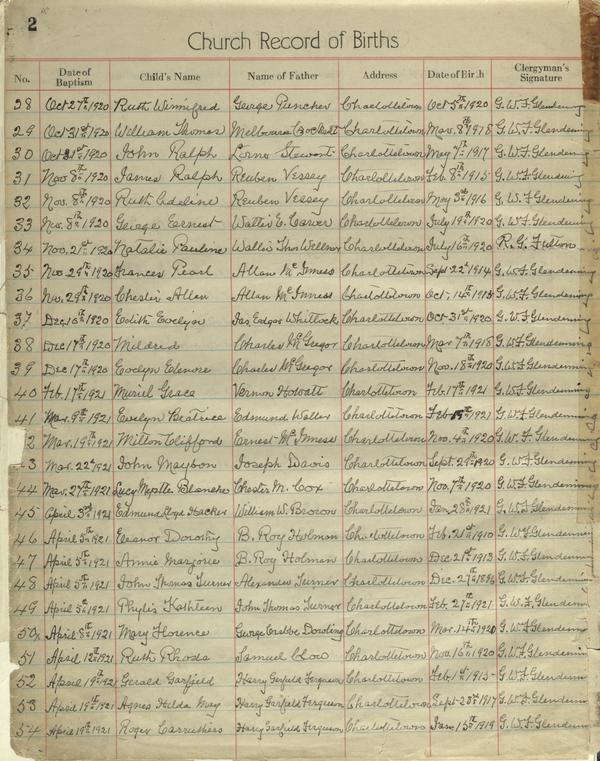 2
Church Record of Births
No. Date of Baptism Child's Name Name of Father Address Date of Birth Clergyman's Signature
28 Oct 27th 1920 Ruth Winnifred George Puncher Charlottetown Oct 5th 1920 G. W. F. Glendening
29 Oct 31st 1920 William Thomas Melbourne Charlottetown Mar. 8th 1918 G. W. F. Glendening
30 Oct 31st 1920 John Ralph Lorne Stewart Charlottetown May 7th 1917 G. W. F. Glendening
31 Nov 8th 1920 James Ralph Reuben Vessey Charlottetown Feb 8th 1915 G. W. F. Glendening
32 Nov. 8th 1920 Ruth Adeline Reuben Vessey Charlottetown May 3rd 1916 G. W. F. Glendening
33 Nov. 8th 1920 George Ernest Charlottetown July 19th 1920 G. W. F. Glendening
34 Nov. 21st 1920 Natalie Pauline Wallis Charlottetown July 16th 1920 R. G. Fulton
35 Nov. 29th 1920 Frances Pearl Allan McInness Charlottetown Sept 22nd 1914 G. W. F. Glendening
36 Nov. 29th 1920 Chester Allan Allan McInness Charlottetown Oct. 14th G. W. F. Glendening
37 Dec. 16th 1920 Edith Evelyn Jas Edgar Whitlock Charlottetown Oct 31st 1920 G. W. F. Glendenning
38 Dec 17th 1920 Mildred Charles McGregor Charlottetown Mar 7th 1918 G. W. F. Glendenning
39 Dec 17th 1920 Evelyn Elenore Charles McGregor Charlottetown Nov. 18th 1920 G. W. F. Glendenning
40 Feb. 17th 1921 Muriel Grace Vernon Howatt Charlottetown Feb. 17th 1921 G. W. F. Glendenning
41 Mar. 9th 1921 Evelyn Beatrice Edmund Waller Charlottetown Feb 1921 G. W. F. Glendenning
2 Mar. 19th 1921 Milton Clifford Ernest McInness Charlottetown Nov. 4th 1920 G. W. F. Glendenning
3 Mar. 22nd 1921 John Maybon Joseph Davis Charlottetown Sept. 29th 1920 G. W. F. Glendenning
44 Mar. 27th 1921 Lucy Blanche Chester M. Cox Charlottetown Nov. 7th 1920 G. W. F. Glendenning
45 April 3rd 1921 Edmund Lloyd Hacker William W. Brown Charlottetown Jan 28th 1921 G. W. F. Glendenning
46 April 5th 1921 Eleanor Dorothy B. Roy Holman Charlottetown Feb. 21st 1910 G. W. F. Glendenning
47 April 5th 1921 Annie Marjorie B. Roy Holman Charlottetown Dec. 21st 1913 G. W. F. Glendenning
48 April 5th 1921 John Thomas Turner Alexander Turner Charlottetown Dec. 27th 1896 G. W. F. Glendenning
49 April 5th 1921 Phylis Kathleen John Thomas Turner Charlottetown Feb. 27th 1921 G. W. F. Glendenning
50x April 8th 1921 Mary Florence George Crabbe Dowling Charlottetown Mar. 14th 1920 G. W. F. Glendenning
51 April 12th 1921 Ruth Rhoda Samuel Clow Charlottetown Nov. 16th 1920 G. W. F. Glendenning
52 April 19th 1921 Gerald Garfield Harry Garfield Ferguson Charlottetown Feb. 1st 1915 G. W. F. Glendenning
53 April 19th 1921 Agnes Hilda May Harry Garfield Ferguson Charlottetown Sept. 23rd 1917 G. W. F. Glendenning
54 April 19th 1921 Roger Carruthers Harry Garfield Ferguson Charlottetown Jan. 15th 1919 G. W. F. Glendenning